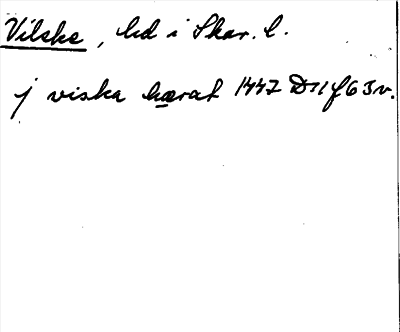 Vilske, hd i Skar. l.
j viska hærat 1447 D 11 f 63 v.